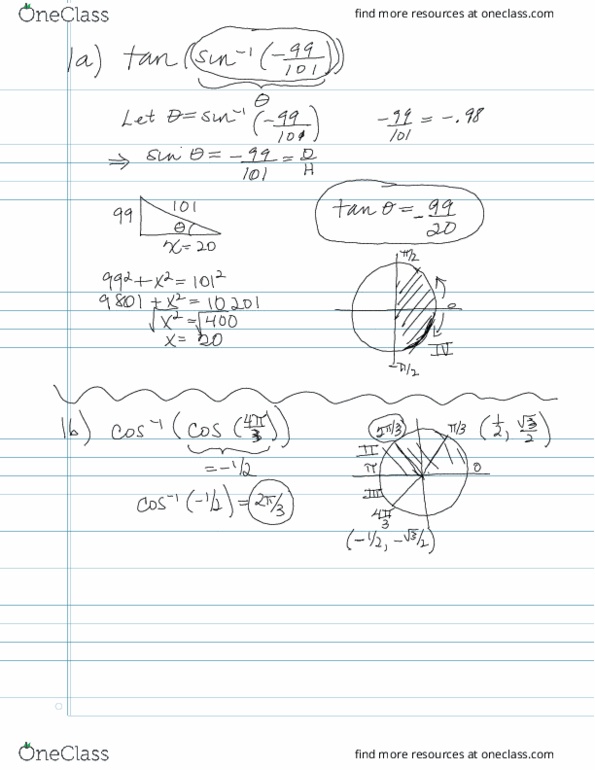 OneClass find more resources at oneclass.com
1a) tan (sin⁻¹ (-99/101))
θ
Let θ = sin⁻¹ (-99/101) -99/101 = -.98
⇒ sin θ = -99/101 = O/H
99 101 θ x = 20
tan θ = -99/20
99² + x² = 101²
9801 + x² = 10201
√x² = √400
x = 20
π/2
0
IV
-π/2
1b) cos⁻¹ (cos (4π/3))
= -1/2
cos⁻¹ (-1/2) = 2π/3
2π/3 π/3 (1/2, √3/2)
II
π 0
III
4π/3
(-1/2, -√3/2)
OneClass find more resources at oneclass.com